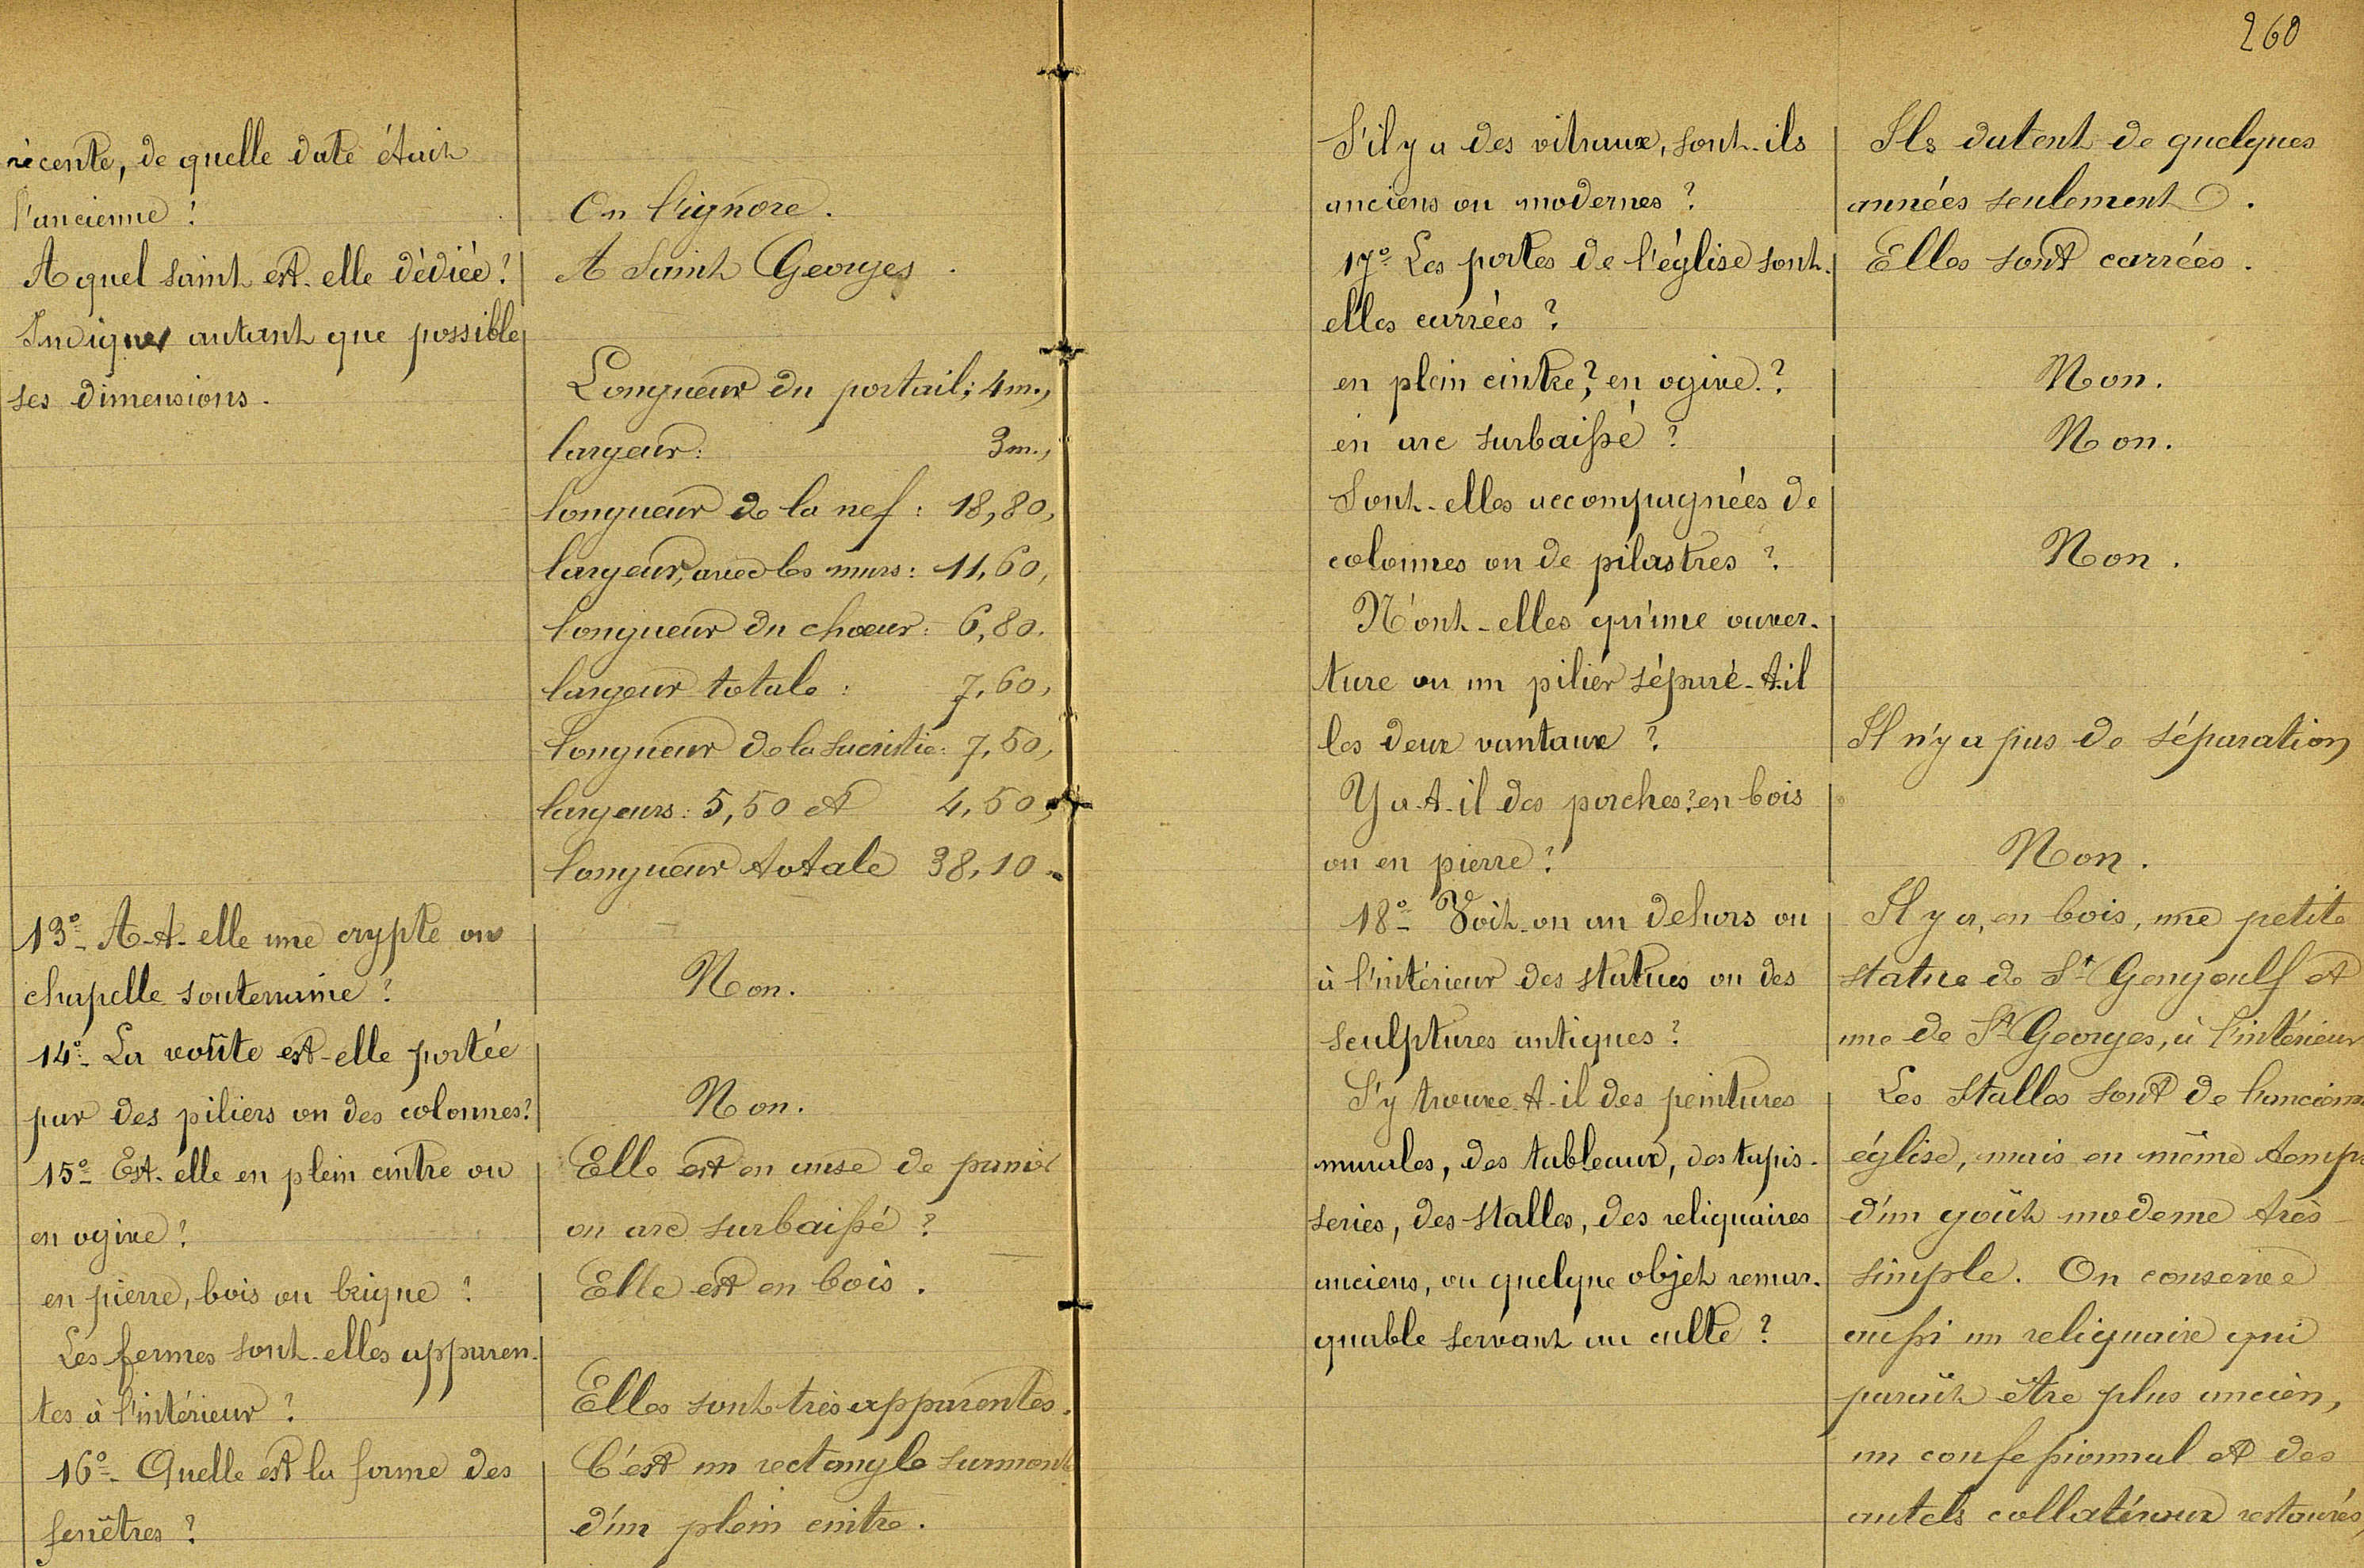 récente, de quelle date était
l'ancienne ?
On l'ignore.
A quel saint est-elle dédiée ?
A Saint Georges.
Indiquer autant que possible
ses dimensions.
Longueur du portail : 4m.,
largeur : 3m.,
longueur de la nef : 18,80,
largeur, avec les murs : 11,60,
longueur du chœur : 6,80.
largeur totale : 7,60,
longueur de la sacristie : 7,50,
largeurs : 5,50 et 4,50,
longueur totale 38,10.
13º- A-t-elle une crypte ou
chapelle souterraine ?
Non.
14º- La voûte est-elle portée
par des piliers ou des colonnes ?
Non.
15º- Est-elle en plein cintre ou
en ogive ?
Elle est en anse de panier
ou arc surbaissé ?
en pierre, bois ou brique ?
Elle est en bois.
Les fermes sont-elles apparen-
tes à l'intérieur ?
Elles sont très apparentes.
16º- Quelle est la forme des
fenêtres ?
C'est un rectangle surmonté
d'un plein cintre.
260
S'il y a des vitraux, sont-ils
anciens ou modernes ?
Ils datent de quelques
années seulement.
17º- Les portes de l'église sont-
elles carrées ?
Elles sont carrées.
en plein cintre ? en ogive ?
Non.
en arc surbaissé ?
Non.
Sont-elles accompagnées de
colonnes ou de pilastres ?
Non.
N'ont-elles qu'une ouver-
ture ou un pilier sépare-t-il
les deux vantaux ?
Il n'y a pas de séparation
Y a-t-il des porches ? en bois
ou en pierre ?
Non.
18º- Voit-on au dehors ou
à l'intérieur des statues ou des
sculptures antiques ?
Il y a, en bois, une petite
statue de St Gengoulf et
une de St Georges, à l'intérieur
S'y trouve-t-il des peintures
murales, des tableaux, des tapis-
series, des stalles, des reliquaires
anciens, ou quelque objet remar-
quable servant au culte ?
Les stalles sont de l'ancienne
église, mais en même temps
d'un goût moderne très
simple. On conserve
aussi un reliquaire qui
paraît être plus ancien,
un confessionnal et des
autels collatéraux restaurés,